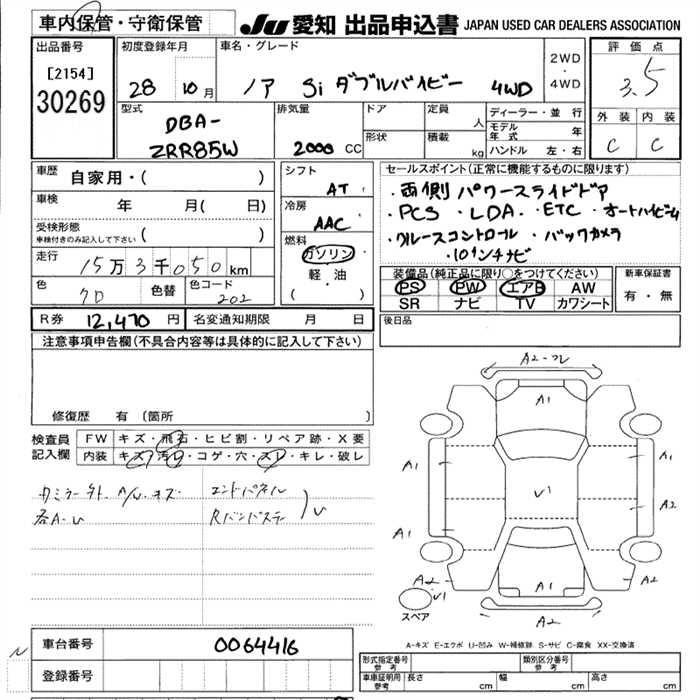 車内保管・守衛保管
JU 愛知 出品申込書 JAPAN USED CAR DEALERS ASSOCIATION
出品番号
[2154]
30269
初度登録年月
28 年 10 月
車名・グレード
ノア Si ダブルバイビー 4WD
2WD
・
4WD
評価点
3.5
外装 内装
C C
型式
DBA-
ZRR85W
排気量
2000 CC
ドア
形状
定員
人
積載
kg
ディーラー・並行
モデル年式 年
ハンドル 左・右
車歴
自家用・( )
車検
年 月( 日)
受検形態
車検付きのみ記入して下さい ( )
走行
15万3千050km
色
クロ
色替
色コード
202
シフト
AT
冷房
AAC
燃料
ガソリン
軽・油
( )
セールスポイント(正常に機能するものに限ります)
・両側パワースライドドア
・PCS ・LDA ・ETC ・オートハイビーム
・クルーズコントロール ・バックカメラ
・10インチナビ
装備品(純正品に限り○をつけてください)
PS PW エアB AW
SR ナビ TV カワシート
新車保証書
有・無
R券 12,470 円 名変通知期限 月 日
後日品
注意事項申告欄(不具合内容等は具体的に記入して下さい)
修復歴 有(箇所 )
検査員
記入欄
FW キズ・飛石・ヒビ割・リペア跡・X要
内装 キズ・汚レ・コゲ・穴・スレ・キレ・破レ
各A・U
エンドパネル
A2
A1
A1
A1
A1
A2
A1
A1
A2
A2
スペア
A-キズ E-エクボ U-凹み W-補修跡 S-サビ C-腐食 XX-交換済
車台番号 0064416
登録番号
型式指定番号
参考
類別区分番号
参考
車庫証明用
参考
長さ cm 幅 cm 高さ cm